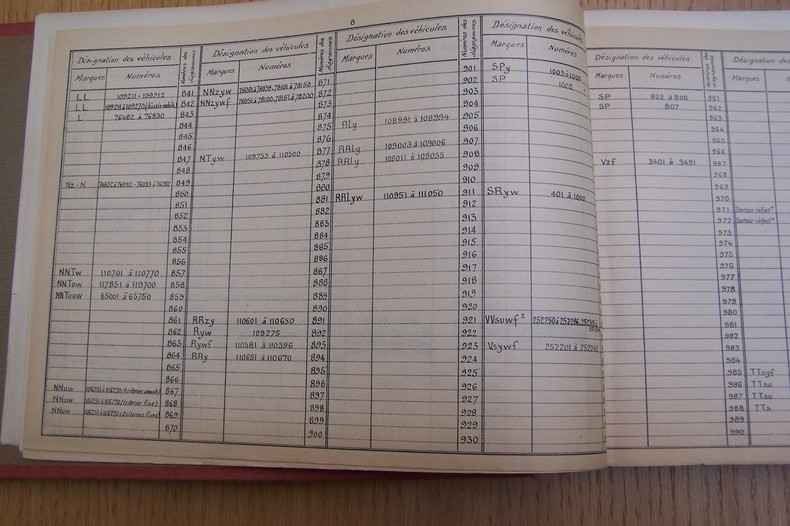 8
Désignation des véhicules
Marques Numéros
LL 109211 - 109212 841
LL 842
L 76482 à 76830 843
844
845
846
847
848
Nz - N 849
850
851
852
853
854
855
856
NNTw 110701 à 110770 857
NNTow 117851 à 119700 858
NNTouw 65001 à 65750 859
860
861
862
863
864
865
866
NNuw 867
NNuw 868
NNuw 869
870
Désignation des véhicules Numéros des diagrammes
Marques Numéros
NNzyw 871
NNzywf 872
873
874
875
876
NTyw 109753 à 110500 877
878
879
880
881
882
883
884
885
886
887
888
889
890
RRzy 110601 à 110650 891
Ryw 109275 892
Rywf 110581 à 110596 893
RRy 110651 à 110670 894
895
896
897
898
899
900
Désignation des véhicules Numéros des diagrammes
Marques Numéros
901
902
903
904
RLy 108991 à 108994 905
906
RRLy 109003 à 109006 907
RRLy 109011 à 109055 908
909
910
RRLyw 110951 à 111050 911
912
913
914
915
916
917
918
919
920
921
922
923
924
925
926
927
928
929
930
Désignation des véhicules
Marques Numéros
SPy
SP 1002
SRyw 401 à 1000
VVsuwf²
Vsywf 252201 à
Désignation des véhicules Numéros des diagrammes
Marques Numéros
SP 802 à 806 961
SP 807 962
963
964
965
966
Vzf 3401 à 3491 967
968
969
970
971
972
973
974
975
976
977
978
979
980
981
982
983
984
985
986
987
988
989
990
Désignation des
Marques
TTsyf
TTsu
TTsu
TTs